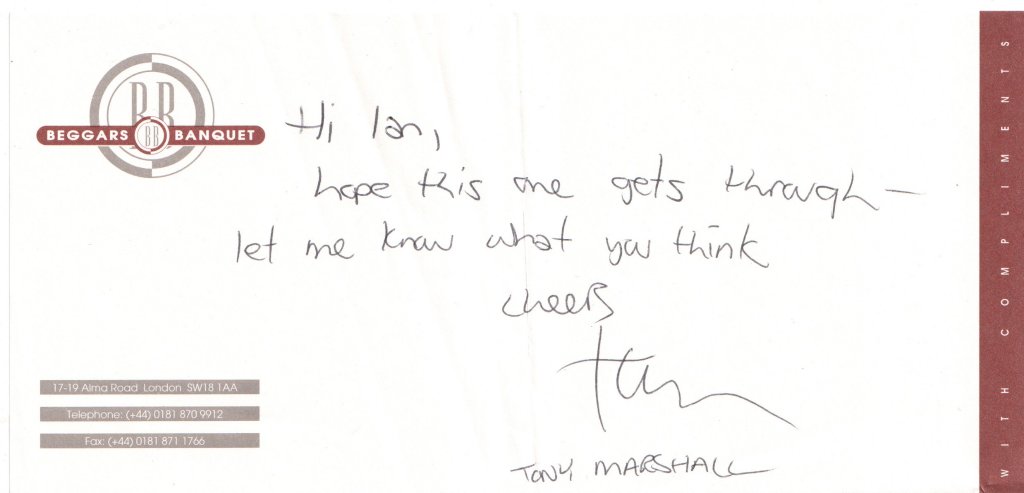 BB
BEGGARS BB BANQUET
Hi Ian,
hope this one gets through —
let me know what you think
cheers
TONY MARSHALL
17-19 Alma Road London SW18 1AA
Telephone: (+44) 0181 870 9912
Fax: (+44) 0181 871 1766
WITH COMPLIMENTS